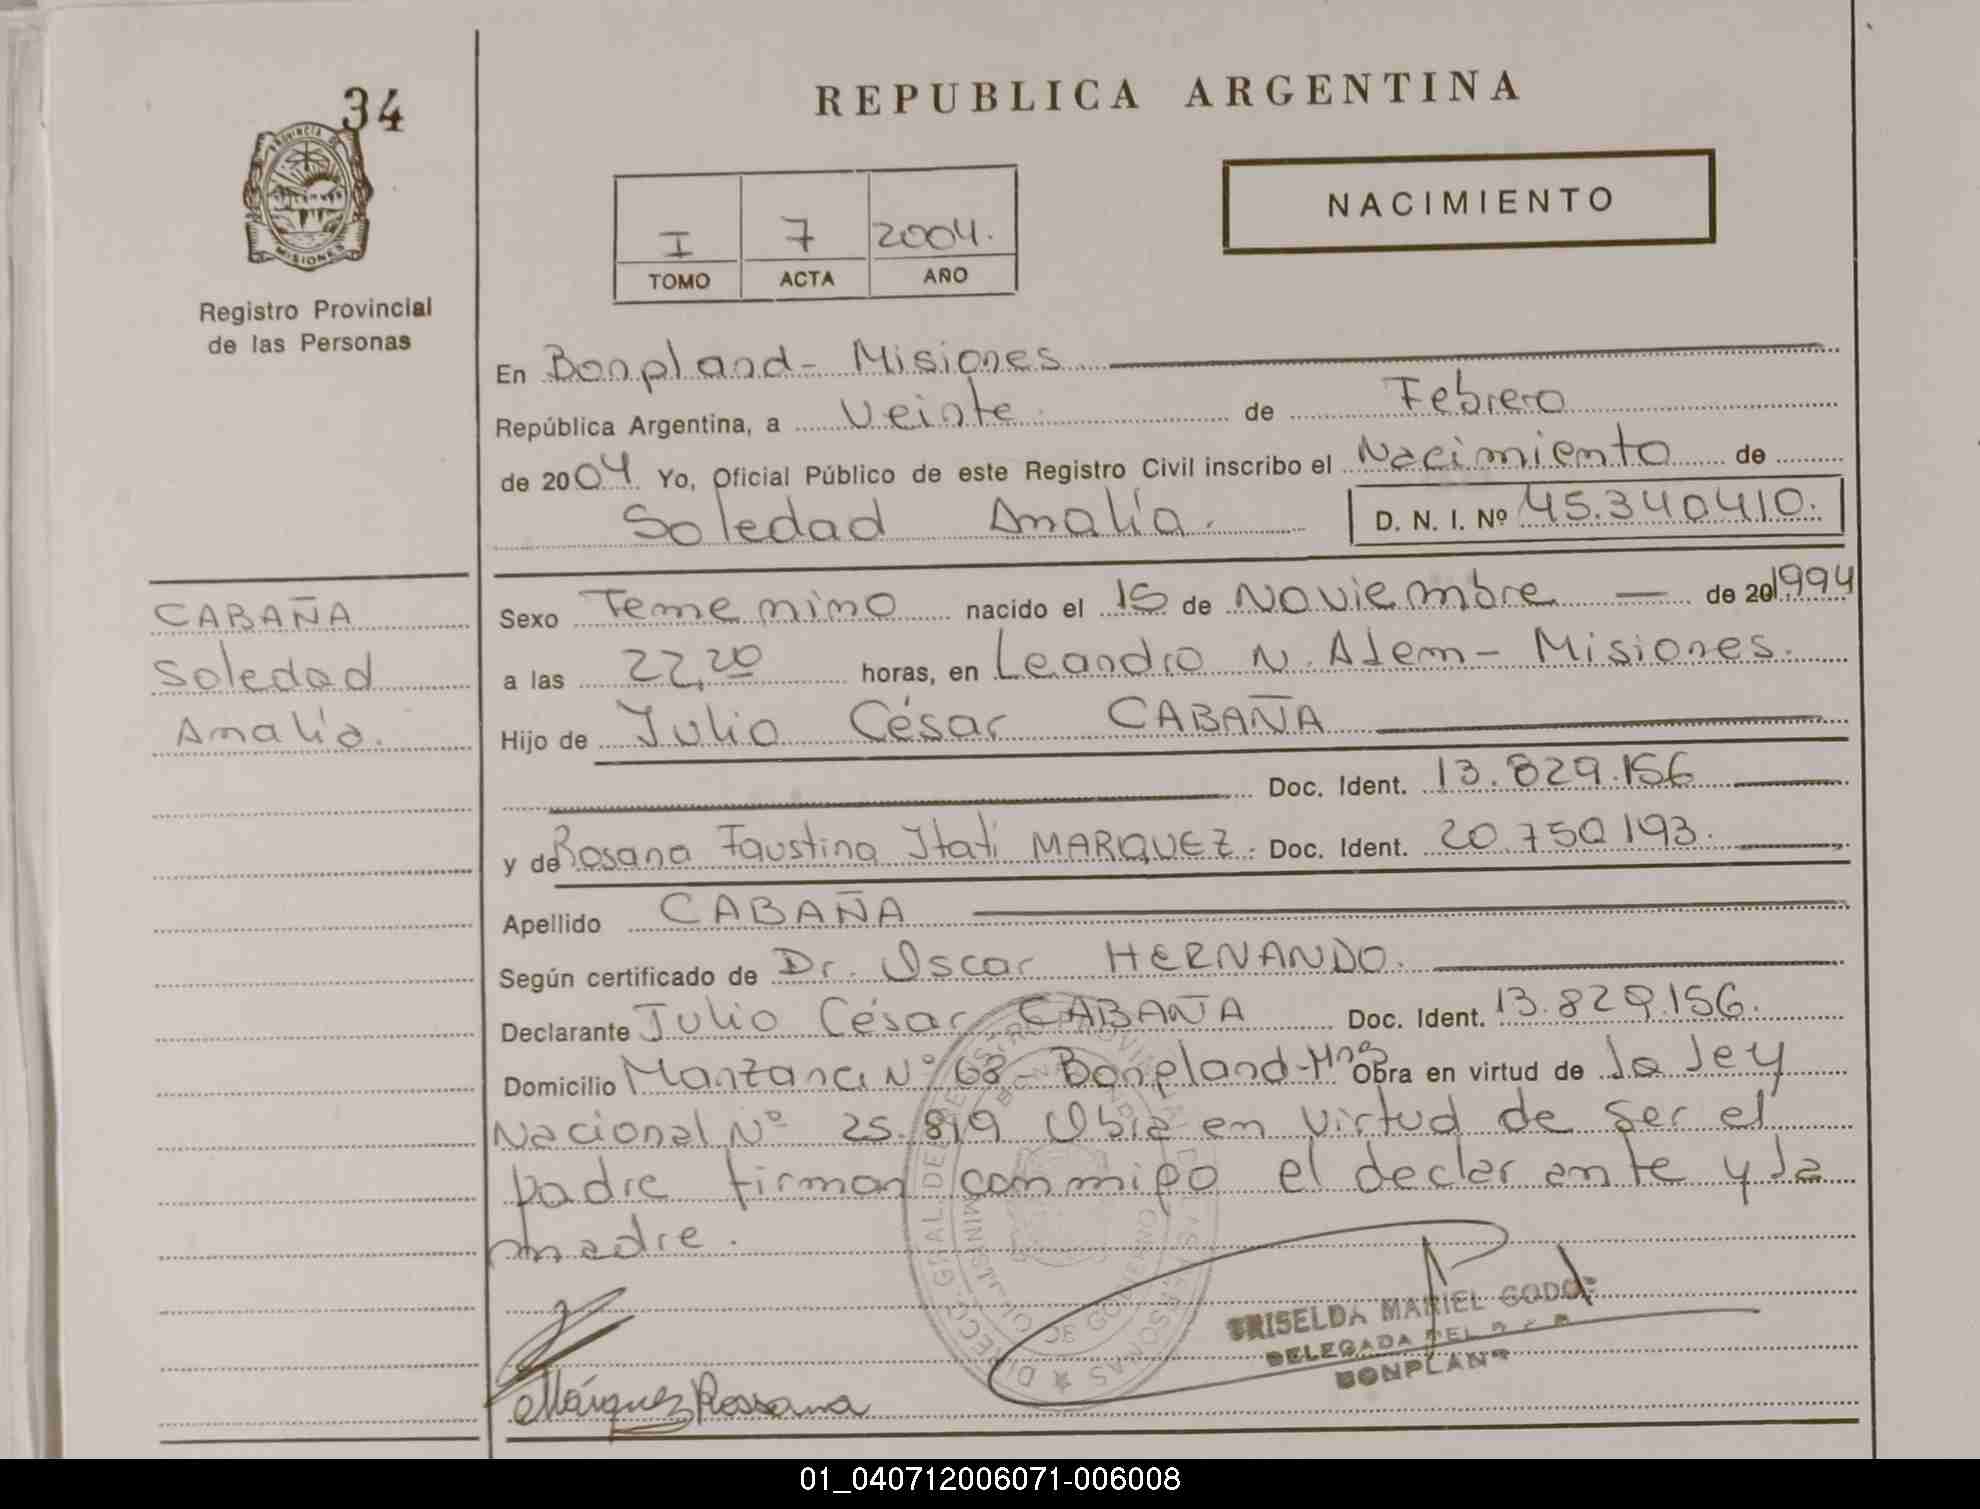 34
PROVINCIA DE
MISIONES
Registro Provincial
de las Personas
REPUBLICA ARGENTINA
NACIMIENTO
I 7 2004.
TOMO ACTA AÑO
En Bonpland - Misiones
República Argentina, a Veinte de Febrero
de 2004 Yo, Oficial Público de este Registro Civil inscribo el Nacimiento de
Soledad Analía. D. N. I. Nº 45.340410.
CABAÑA
Soledad
Analía.
Sexo Femenino nacido el 15 de Noviembre — de 201994
a las 22,20 horas, en Leandro N. Alem - Misiones.
Hijo de Julio César CABAÑA
Doc. Ident. 13.829.156
y de Rosana Faustina Itati MARQUEZ. Doc. Ident. 20.750.193.
Apellido CABAÑA
Según certificado de Dr. Oscar HERNANDO.
Declarante Julio César CABAÑA Doc. Ident. 13.829.156.
Domicilio Manzana Nº 63 - Bonpland - Mnes Obra en virtud de la ley
Nacional Nº 25.819 Obra en virtud de ser el
padre firman conmigo el declarante y la
madre.
GRISELDA MARIEL GODOY
DELEGADA DEL R.P.P.
BONPLAND
Márquez Rossana
01_040712006071-006008